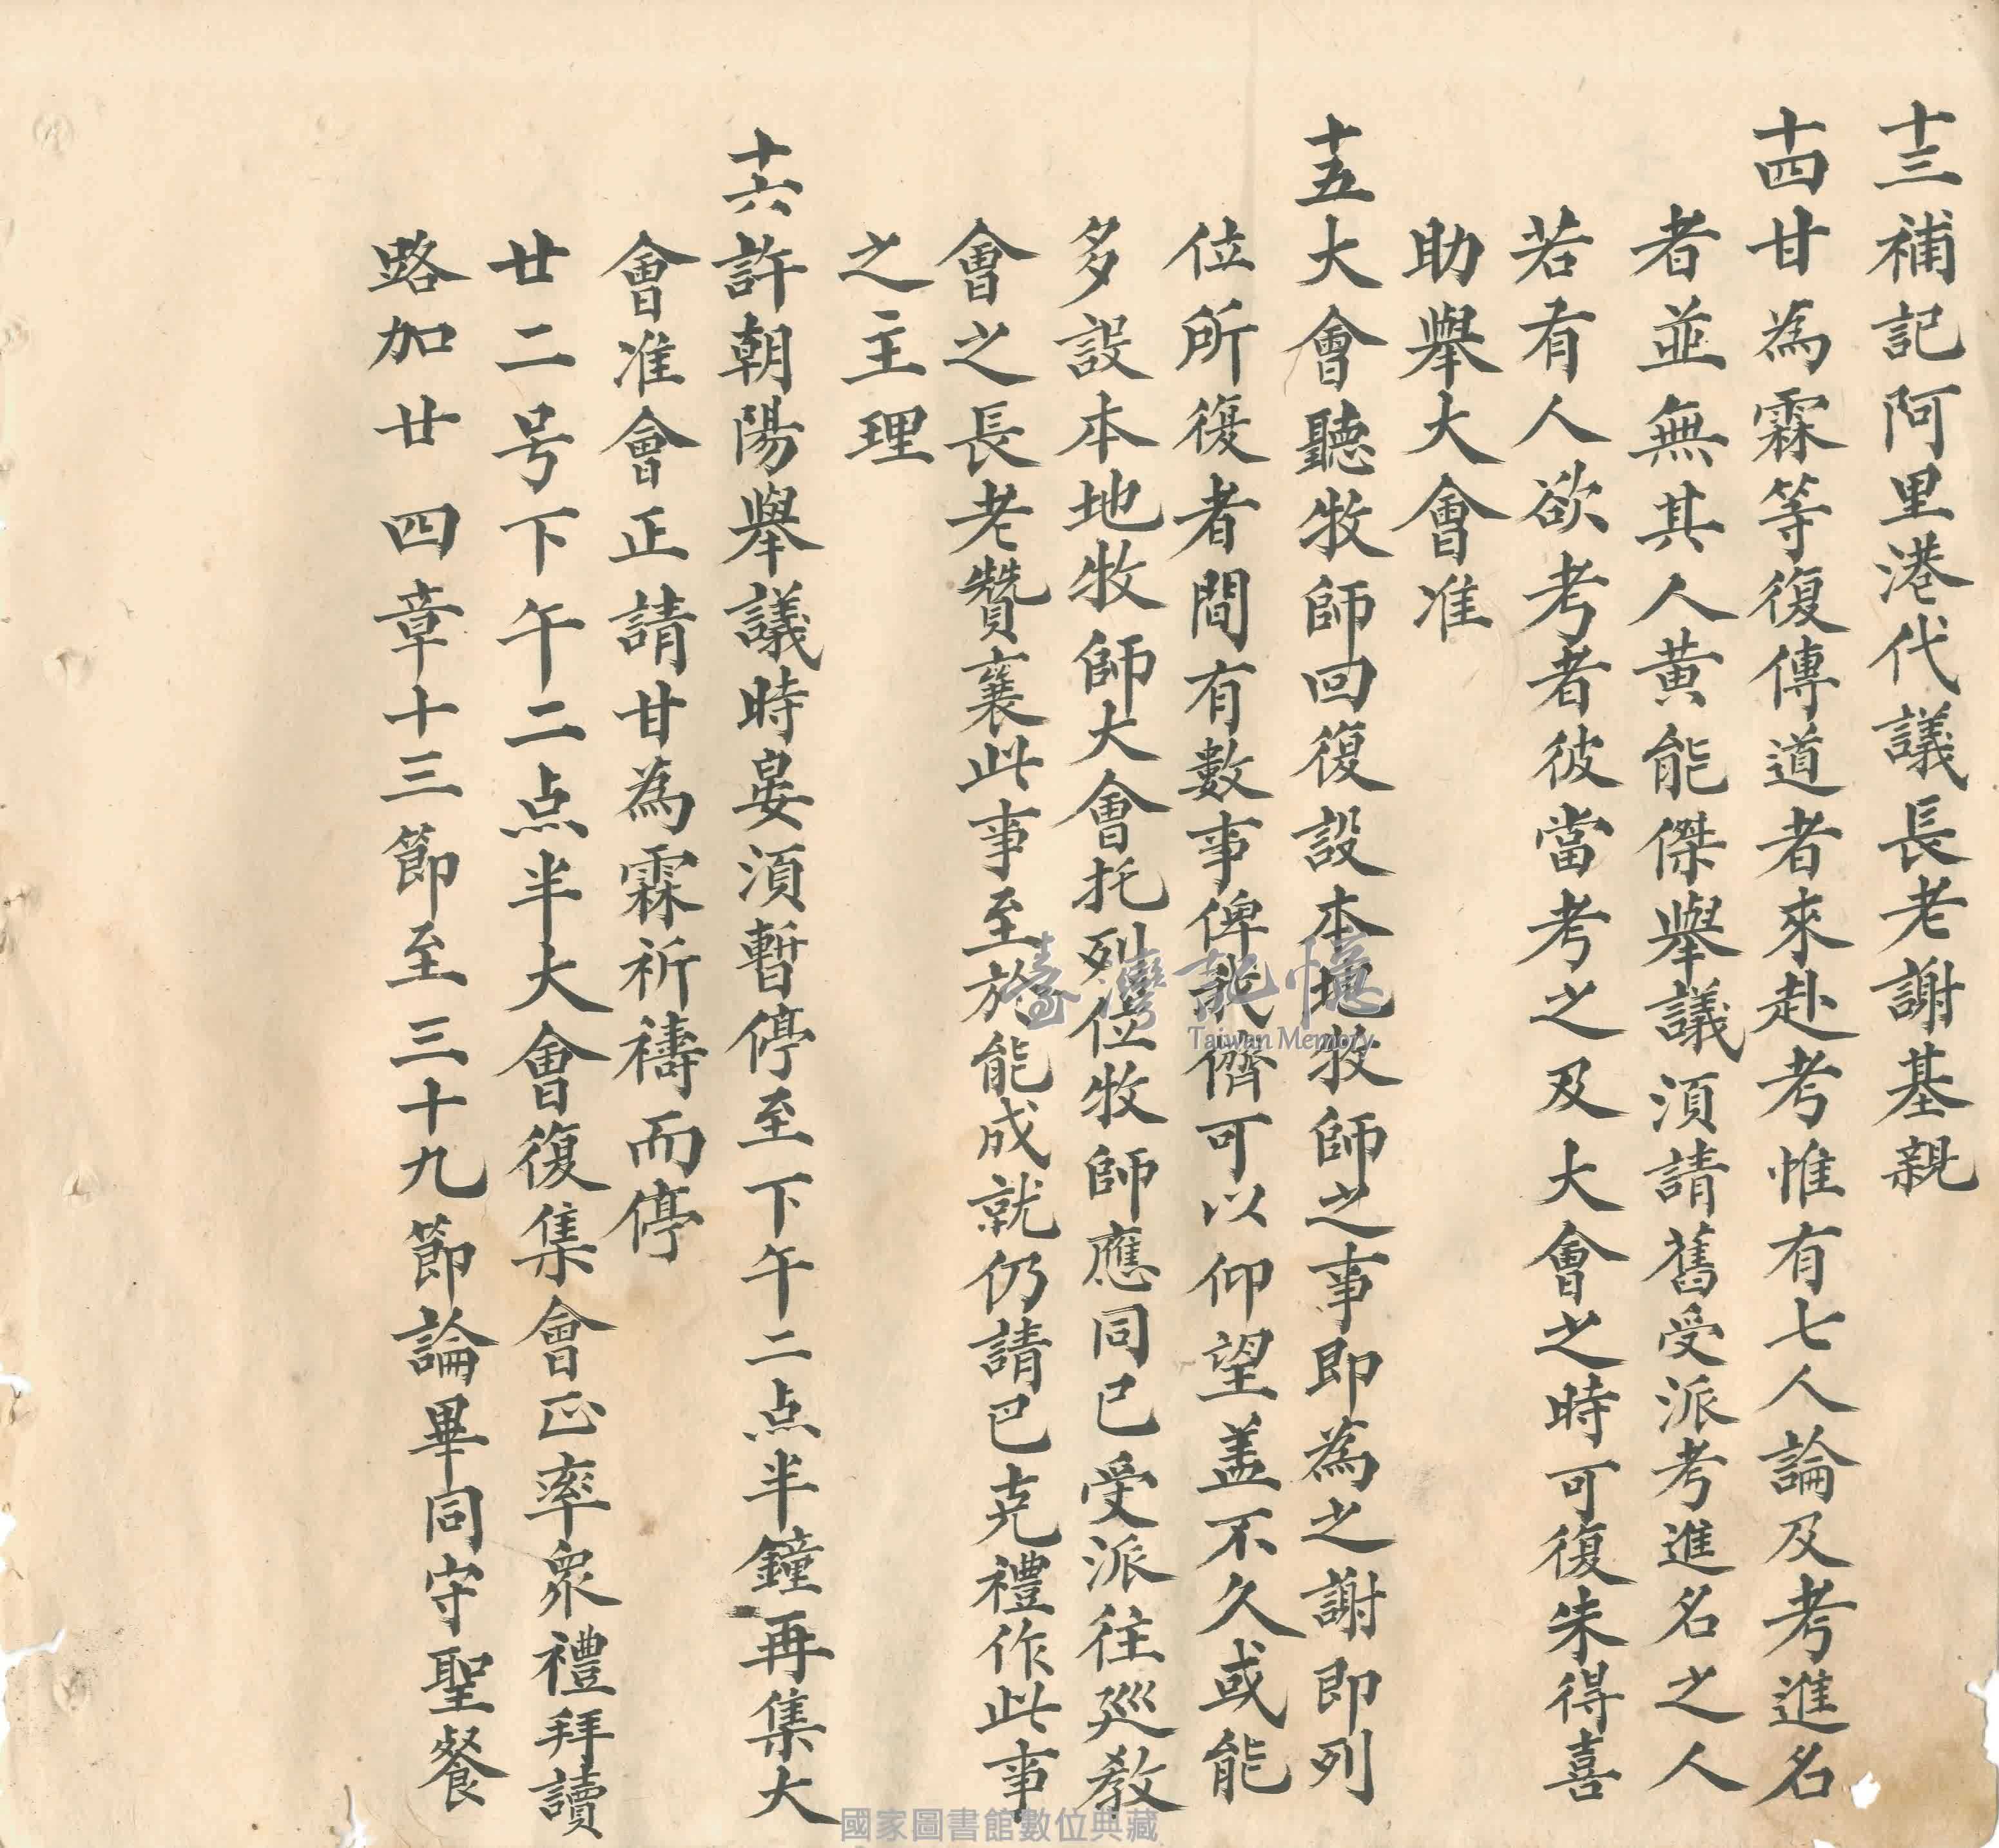 十三補記阿里港代議長老謝基親
十四甘為霖等復傳道者來赴考惟有七人論及考進名
者並無其人黃能傑舉議須請舊受派考進名之人
若有人欲考者彼當考之及大會之時可復朱得喜
助舉大會准
十五大會聽牧師回復設本地牧師之事即為之謝即列
位所復者間有數事俾我儕可以仰望盖不久或能
多設本地牧師大會托列位牧師應同已受派往廵教
會之長老贊襄此事至於能成就仍請巴克禮作此事
之主理
十六許朝陽舉議時晏須暫停至下午二点半鐘再集大
會准會正請甘為霖祈禱而停
廿二号下午二点半大會復集會正率眾禮拜讀
路加廿四章十三節至三十九節論畢同守聖餐
臺灣記憶
Taiwan Memory
國家圖書館數位典藏